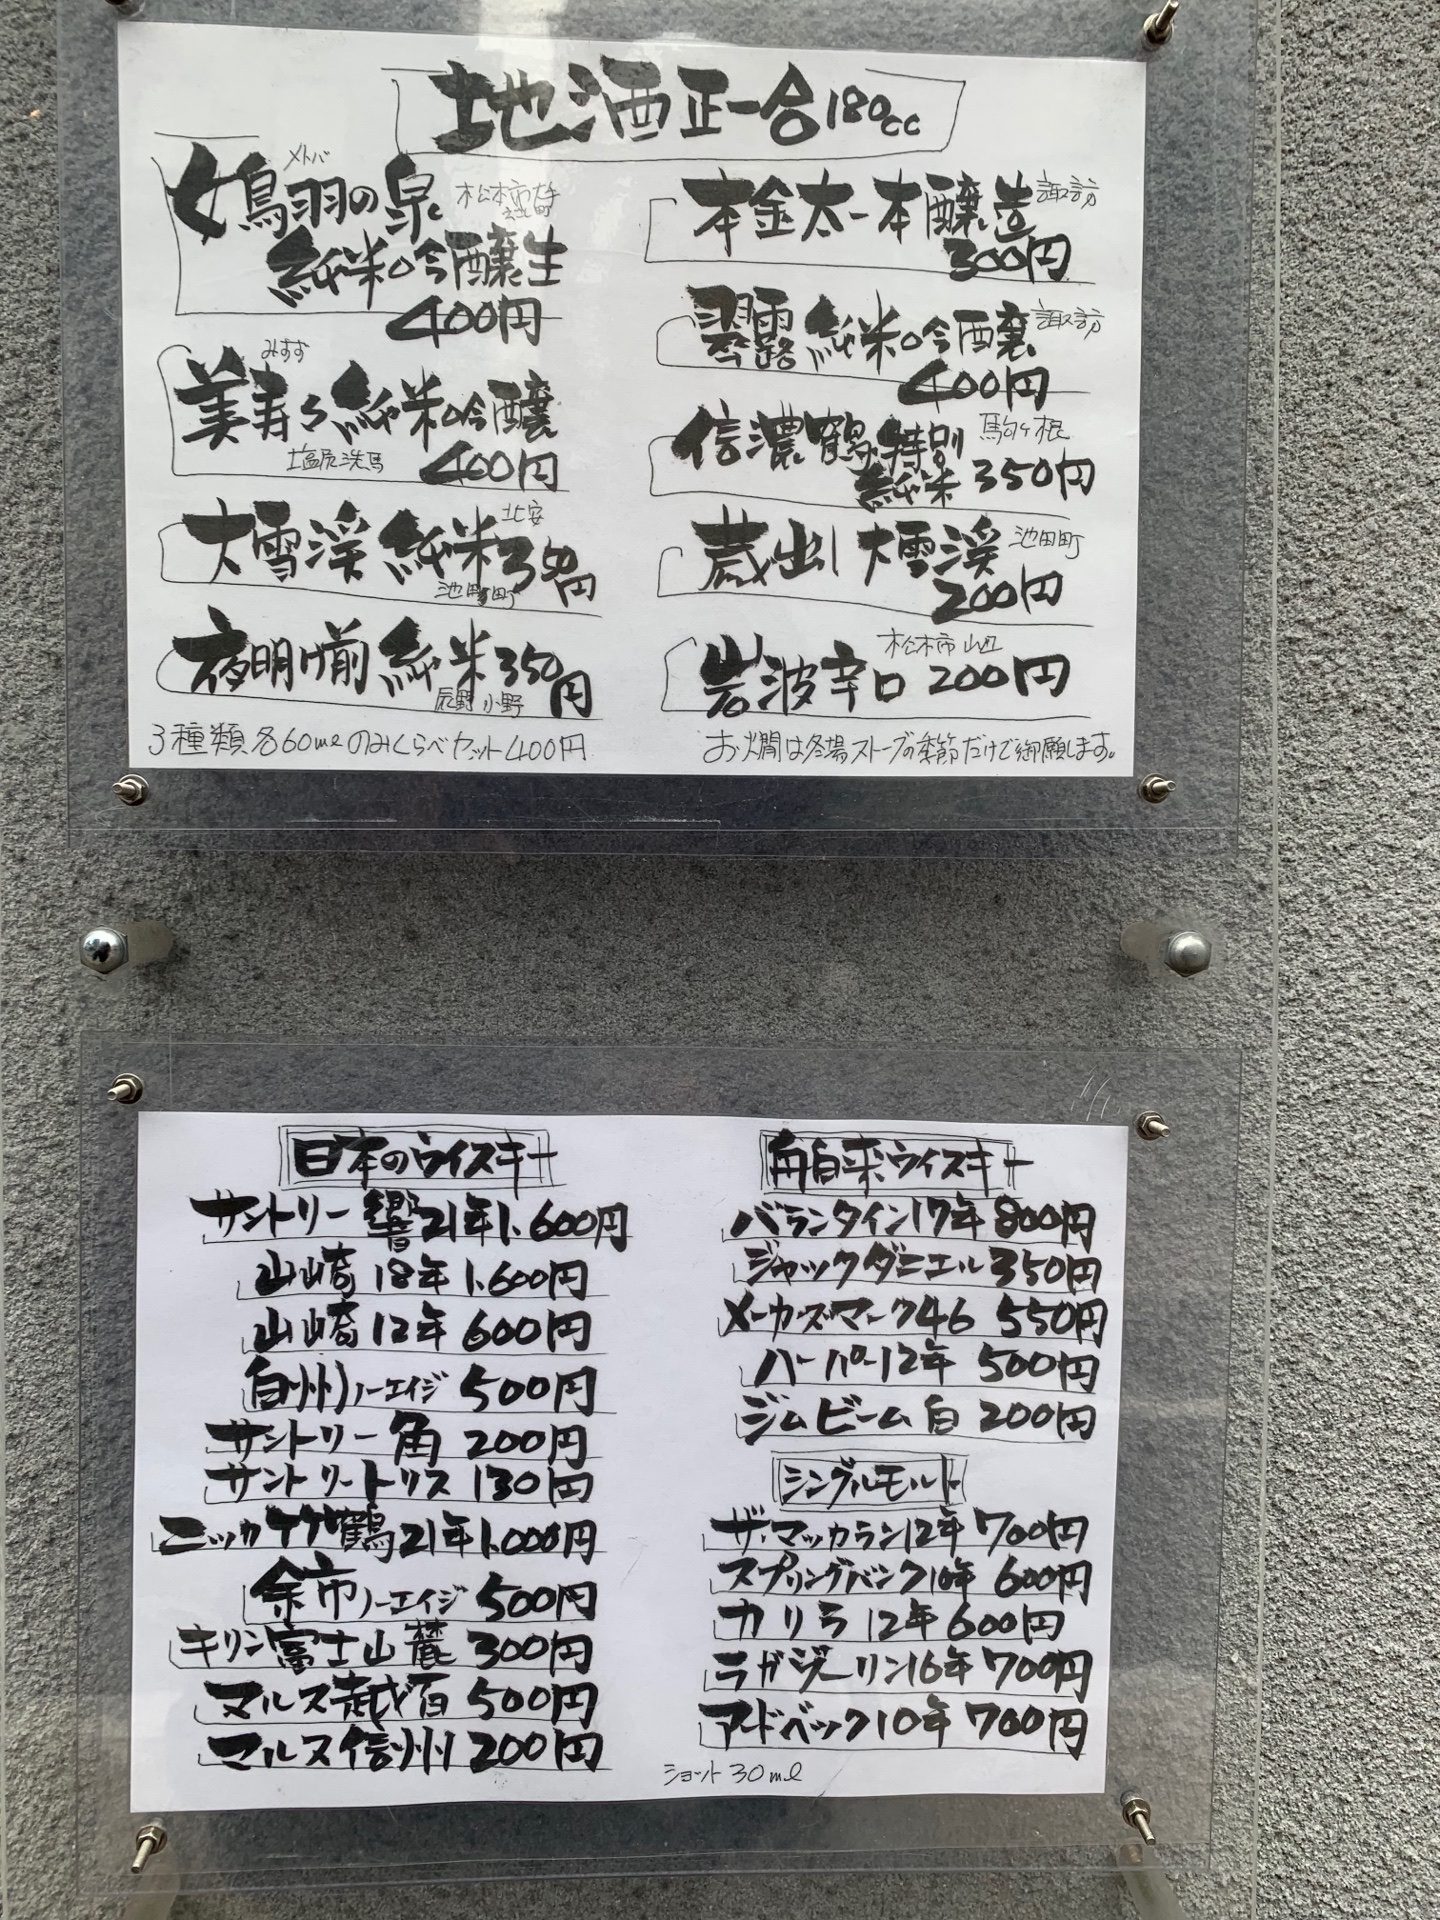 地酒正一合180cc
メトバ
女鳥羽の泉 松本市
純米吟醸生
400円
みすず
美寿々純米吟醸
塩尻洗馬 400円
大雪渓 純米 350円
北安
池田町
夜明け前 純米 350円
辰野 小野
3種類各60mlのみくらべセット400円
本金太一本醸造 諏訪
300円
翠露 純米吟醸 諏訪
400円
信濃鶴 特別 駒ヶ根
純米 350円
蔵出し 大雪渓 池田町
200円
松本市 山辺
岩波辛口 200円
お燗は冬場ストーブの季節だけで御願します。
日本のウイスキー
サントリー 響21年1,600円
山崎 18年 1,600円
山崎 12年 600円
白州ノーエイジ 500円
サントリー 角 200円
サントリートリス 130円
ニッカ 竹鶴21年1,000円
余市ノーエイジ 500円
キリン富士山麓 300円
マルス越百 500円
マルス信州 200円
舶来ウイスキー
バランタイン17年 800円
ジャックダニエル 350円
メーカーズマーク46 550円
ハーパー12年 500円
ジムビーム白 200円
シングルモルト
ザ・マッカラン12年 700円
スプリングバンク10年 600円
カリラ 12年 600円
ラガブーリン16年 700円
アードベック10年 700円
ショット 30ml